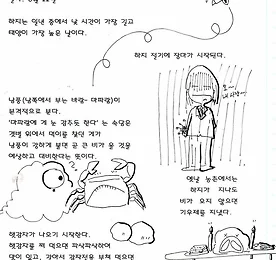 하지는 일년 중에서 낮 시간이 가장 길고
태양이 가장 높은 날이다.
하지 절기에 장마가 시작된다.
남풍(남쪽에서 부는 바람- 마파람)이
본격적으로 분다.
'마파람에 게 눈 감추듯 한다' 는 속담은
갯벌 위에서 먹이를 찾던 게가
남풍이 강하게 불면 곧 큰 비가 올 것을
예상하고 대비한다는 뜻이다.
옛날 농촌에서는
하지가 지나도
비가 오지 않으면
기우제를 지냈다.
햇감자가 나오기 시작한다.
햇감자를 쪄 먹으면 파삭파삭하여
맛이 있고, 갈아서 감자전을 부쳐 먹으면